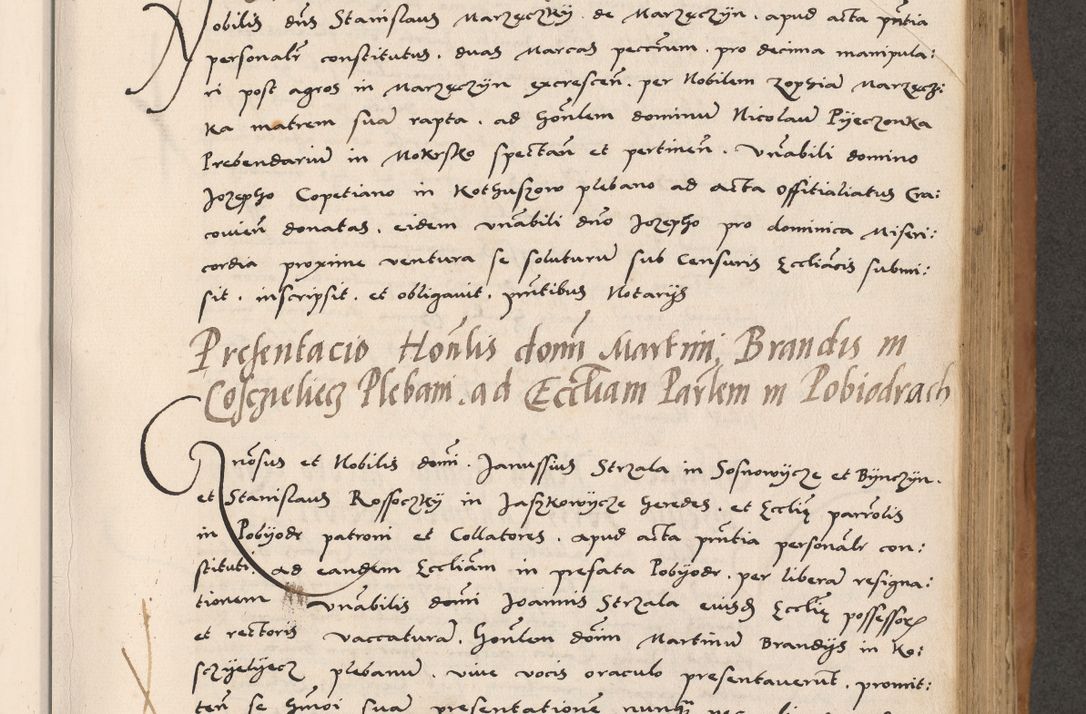 Nobilis dns Stanislaus Marzęczky de Marzęczyn. apud acta pntia
personalr constitutus. duas Marcas peccnum. pro decima manipula:
ri post agros in Marzęczyn excrescen. per Nobilem Zophia Marzęczi:
ka matrem sua rapta. ad honlem dominu Nicolau Pyeczonka
Prebendariu in Mokrsko spectan et pertinen. Vnabili domino
Jozepho Copetiano in Kothuszow plebano ad acta offitialiatus Cra:
couien donatas. eidem vnabili dno Jozepho pro dominica Miseri:
cordia proxime ventura se soluturu sub Censuris Eccliacis submi:
sit. inscripsit. et obligauit. pntibus Notarijs
Presentacio Honlis domi Martini Brandis in
Cosczieliecz Plebani. ad Eccliam Parlem in Pobiodrach
Gnosus et Nobilis domi. Janussius Strzala in Sosnowycze et Bynczyn.
et Stanislaus Rossoczky in Jaszkowycze heredes. et Ecclię parrolis
in Pobyodr patroni et Collatores. apud acta pntia personalr con:
stituti. ad eandem Eccliam in prefata Pobyodr. per libera resigna:
tionem vnabilis domi Joannis Strzala eiusd Ecclię possessor
et rectoris vaccatura. Honlem doim Martinu Brandys in Ko:
sczyelyecz plebanu. viue vocis oraculo presentauerut. promit:
ten se hmoi sua presentatione nunq